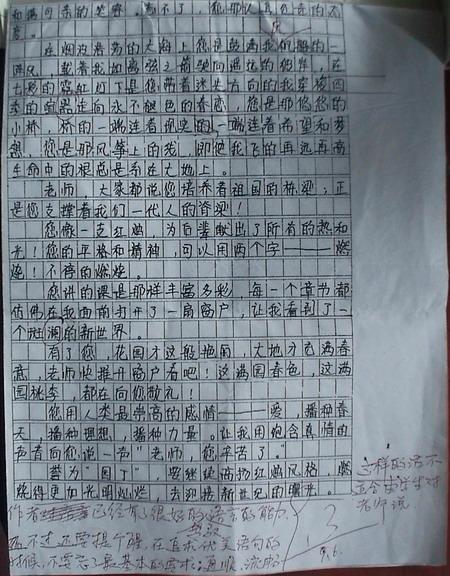 在烟波浩渺的大海上您是鼓满我们帆的一
风，载着我如离弦之箭驶向遥远的彼岸，在
七彩的霓虹灯下是您带着迷失方向的我穿梭四
季的
走向永不褪色的春恋，您是那悠悠的
小桥，桥的一端连着现实的一端连着希望和梦
想，您是那风筝上的线，即使我飞的再远再高
生命中的根总是系在大地上。
老师，大家都说您培养着祖国的栋梁；正
是您支撑着我们一代人的脊梁！
您像一支红烛，为后辈献出了所有的热和
光！您的平格和精神，可以用两个字——燃
烧！不停的燃烧。
您讲的课是那样丰富多彩，每一个章节都
仿佛在我面前打开了一扇窗户，让我看到了一
个斑斓的新世界。
有了您，花园才这般艳丽，大地才充满春
意，老师快推开窗户看吧！这满园春色，这满
园桃李，都在向您敬礼！
您用人类最崇高的感情——爱，播种春
天，播种理想，播种力量。让我用饱含真情的
声音向您说一声“老师，您辛苦了。”
誉为“园丁”，要继续高扬红烛风格，燃
烧得更加光明灿烂，去迎接新世纪的曙光。
这样的话不
适合学生对
老师说
作者已经有了很好的语言的能力
不过还要提个醒，在追求优美语句的
时候，不要忘了最基本的要求：通顺、流畅
9.6.